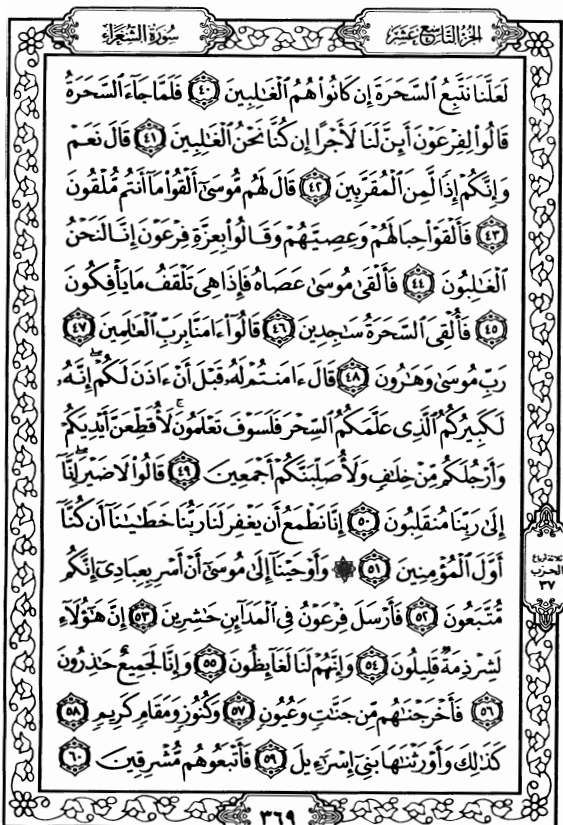 الجزء التاسع عشر
سورة الشعراء
لَعَلَّنَا نَتَّبِعُ ٱلسَّحَرَةَ إِن كَانُوا۟ هُمُ ٱلْغَـٰلِبِينَ ٤٠ فَلَمَّا جَآءَ ٱلسَّحَرَةُ
قَالُوا۟ لِفِرْعَوْنَ أَئِنَّ لَنَا لَأَجْرًا إِن كُنَّا نَحْنُ ٱلْغَـٰلِبِينَ ٤١ قَالَ نَعَمْ
وَإِنَّكُمْ إِذًا لَّمِنَ ٱلْمُقَرَّبِينَ ٤٢ قَالَ لَهُم مُّوسَىٰٓ أَلْقُوا۟ مَآ أَنتُم مُّلْقُونَ
٤٣ فَأَلْقَوْا۟ حِبَالَهُمْ وَعِصِيَّهُمْ وَقَالُوا۟ بِعِزَّةِ فِرْعَوْنَ إِنَّا لَنَحْنُ
ٱلْغَـٰلِبُونَ ٤٤ فَأَلْقَىٰ مُوسَىٰ عَصَاهُ فَإِذَا هِىَ تَلْقَفُ مَا يَأْفِكُونَ
٤٥ فَأُلْقِىَ ٱلسَّحَرَةُ سَـٰجِدِينَ ٤٦ قَالُوٓا۟ ءَامَنَّا بِرَبِّ ٱلْعَـٰلَمِينَ ٤٧
رَبِّ مُوسَىٰ وَهَـٰرُونَ ٤٨ قَالَ ءَامَنتُمْ لَهُۥ قَبْلَ أَنْ ءَاذَنَ لَكُمْ ۖ إِنَّهُۥ
لَكَبِيرُكُمُ ٱلَّذِى عَلَّمَكُمُ ٱلسِّحْرَ فَلَسَوْفَ تَعْلَمُونَ ۚ لَأُقَطِّعَنَّ أَيْدِيَكُمْ
وَأَرْجُلَكُم مِّنْ خِلَـٰفٍ وَلَأُصَلِّبَنَّكُمْ أَجْمَعِينَ ٤٩ قَالُوا۟ لَا ضَيْرَ ۖ إِنَّآ
إِلَىٰ رَبِّنَا مُنقَلِبُونَ ٥٠ إِنَّا نَطْمَعُ أَن يَغْفِرَ لَنَا رَبُّنَا خَطَـٰيَـٰنَآ أَن كُنَّآ
أَوَّلَ ٱلْمُؤْمِنِينَ ٥١ ۞ وَأَوْحَيْنَآ إِلَىٰ مُوسَىٰٓ أَنْ أَسْرِ بِعِبَادِىٓ إِنَّكُم
مُّتَّبَعُونَ ٥٢ فَأَرْسَلَ فِرْعَوْنُ فِى ٱلْمَدَآئِنِ حَـٰشِرِينَ ٥٣ إِنَّ هَـٰٓؤُلَآءِ
لَشِرْذِمَةٌ قَلِيلُونَ ٥٤ وَإِنَّهُمْ لَنَا لَغَآئِظُونَ ٥٥ وَإِنَّا لَجَمِيعٌ حَـٰذِرُونَ
٥٦ فَأَخْرَجْنَـٰهُم مِّن جَنَّـٰتٍ وَعُيُونٍ ٥٧ وَكُنُوزٍ وَمَقَامٍ كَرِيمٍ ٥٨
كَذَٰلِكَ وَأَوْرَثْنَـٰهَا بَنِىٓ إِسْرَٰٓءِيلَ ٥٩ فَأَتْبَعُوهُم مُّشْرِقِينَ ٦٠
ثلاثة أرباع
الحزب
٣٧
٣٦٩